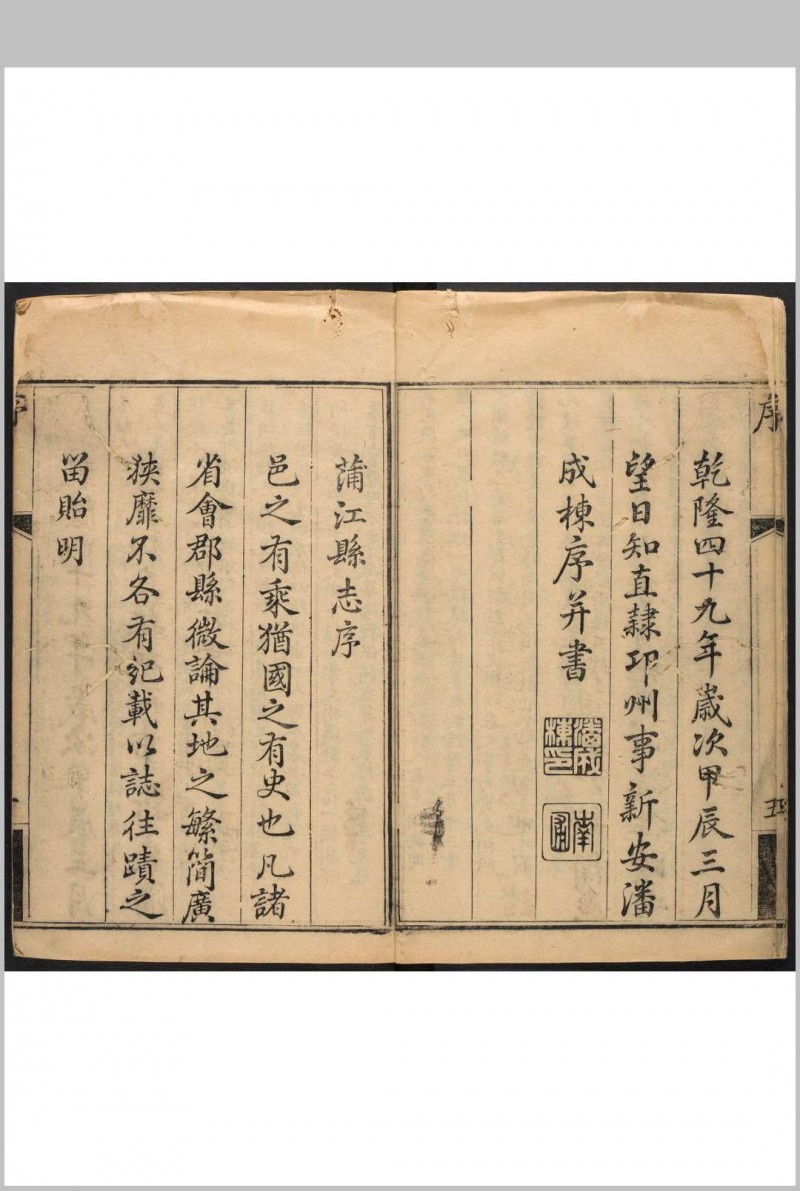 序
五
乾隆四十九年歲次甲辰三月
望日知直隸邛州事新安潘
成棟序并書
潘成棟印
蒲江縣志序
邑之有乘猶國之有史也凡諸
省會郡縣微論其地之繁簡廣
狹靡不各有記載以誌往蹟之
畱貽明